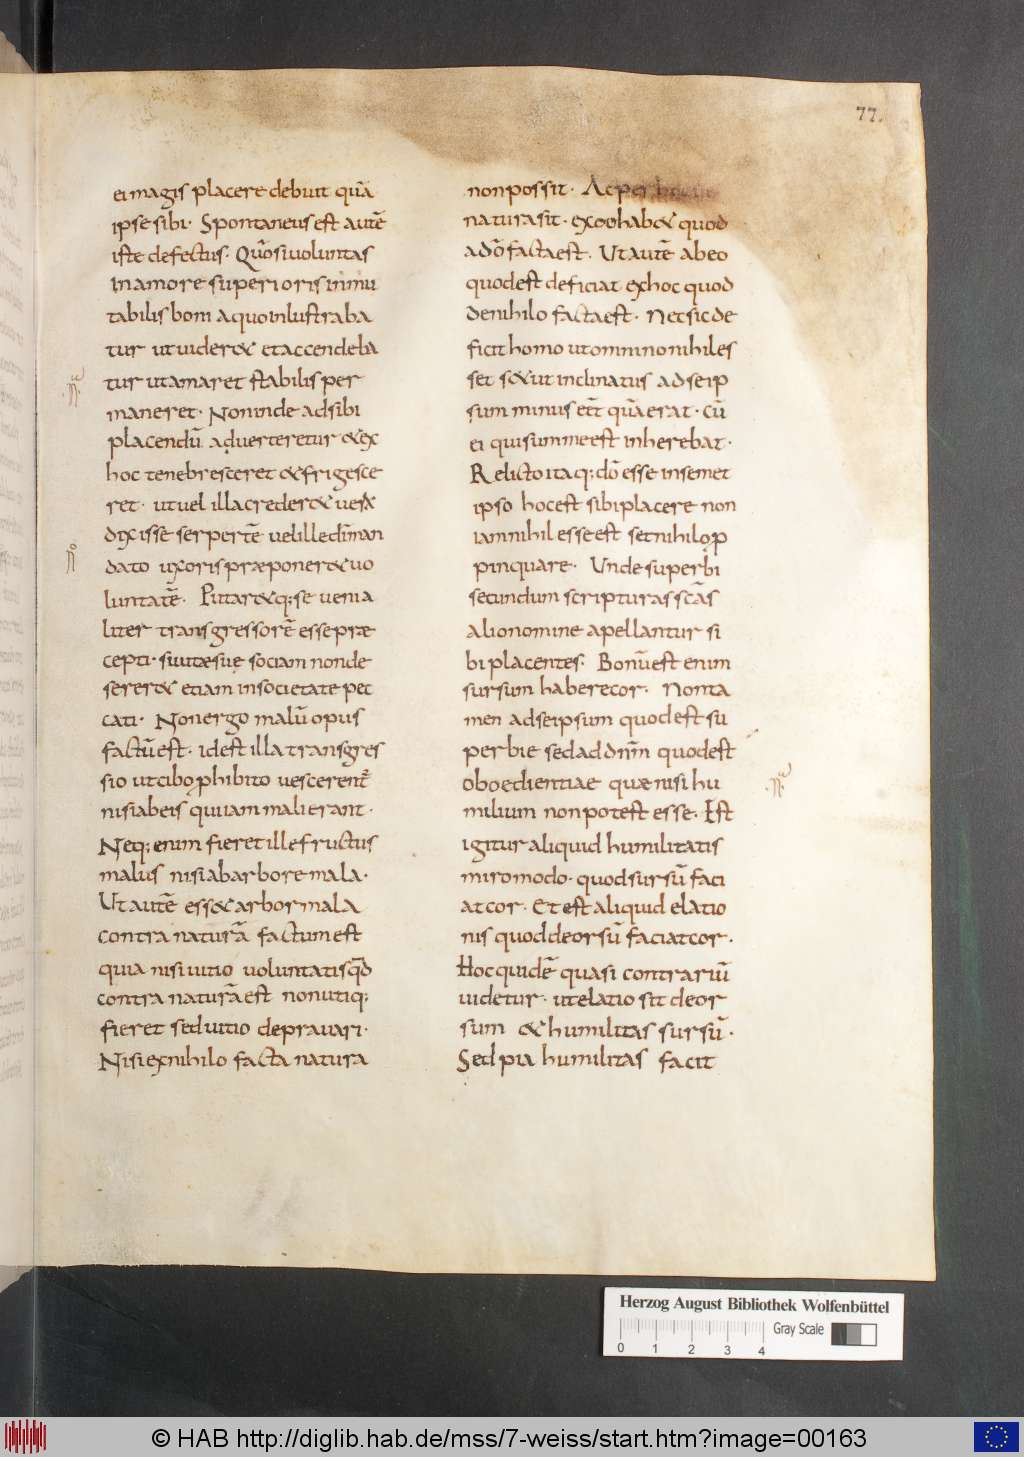 77.
ei magis placere debuit quā
ipse sibi. Spontaneus est autē
iste defectus. Qm̄ si voluntas
in amore superioris inmu
tabilis boni a quo inlustraba
tur ut uider& et accendeba
tur ut amaret stabilis per
maneret. Non inde ad sibi
placendū aduerteretur & ex
hoc tenebresceret & frigesce
ret. ut uel illa creder& uerū
dixisse serpentē uel ille dī man
dato uxoris præponer& uo
luntatē. Putar&q; se uenia
liter transgressorē esse præ
cepti. si uitæ suę sociam non de
serer& etiam in societate pec
cati. Non ergo malū opus
factū est. id est illa transgres
sio ut cibo phibito uescerent̄
nisi ab eis qui iam mali erant.
Neq; enim fieret ille fructus
malus nisi ab arbore mala.
Ut autē ess& arbor mala
contra naturā factum est
quia nisi uitio uoluntatis qđ
contra naturā est non utiq;
fieret sed uitio deprauari.
Nisi ex nihilo facta natura
non possit. Ac per hoc ut
natura sit. ex eo hab& quod
a dō facta est. Ut autē ab eo
quod est deficiat ex hoc quod
de nihilo facta est. Nec sic de
ficit homo ut omnino nihil es
set s& ut inclinatus ad se ip
sum minus eēt quā erat. cū
ei qui summe est inherebat.
Relicto itaq; dō esse in semet
ipso hoc est sibi placere non
iam nihil esse est set nihilo p
pinquare. Unde superbi
secundum scripturas scās
alio nomine apellantur si
bi placentes. Bonū est enim
sursum habere cor. Non ta
men ad se ipsum quod est su
perbie sed ad dn̄m quod est
oboedientiae quæ nisi hu
milium non potest esse. Est
igitur aliquid humilitatis
miro modo. quod sursū faci
at cor. Et est aliquid elatio
nis quod deorsū faciat cor.
Hoc quidē quasi contrariū
uidetur. ut elatio sit deor
sum & humilitas sursū.
Sed pia humilitas facit
Herzog August Bibliothek Wolfenbüttel
Gray Scale
0 1 2 3 4
© HAB http://diglib.hab.de/mss/7-weiss/start.htm?image=00163